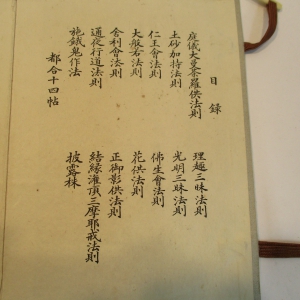 目録
庭儀大曼荼羅供法則
理趣三昧法則
土砂加持法則
光明三昧法則
仁王會法則
佛生會法則
大般若法則
花供法則
舍利會法則
正御影供法則
通夜行道法則
結縁灌頂三摩耶戒法則
施餓鬼作法
披露
都合十四帖